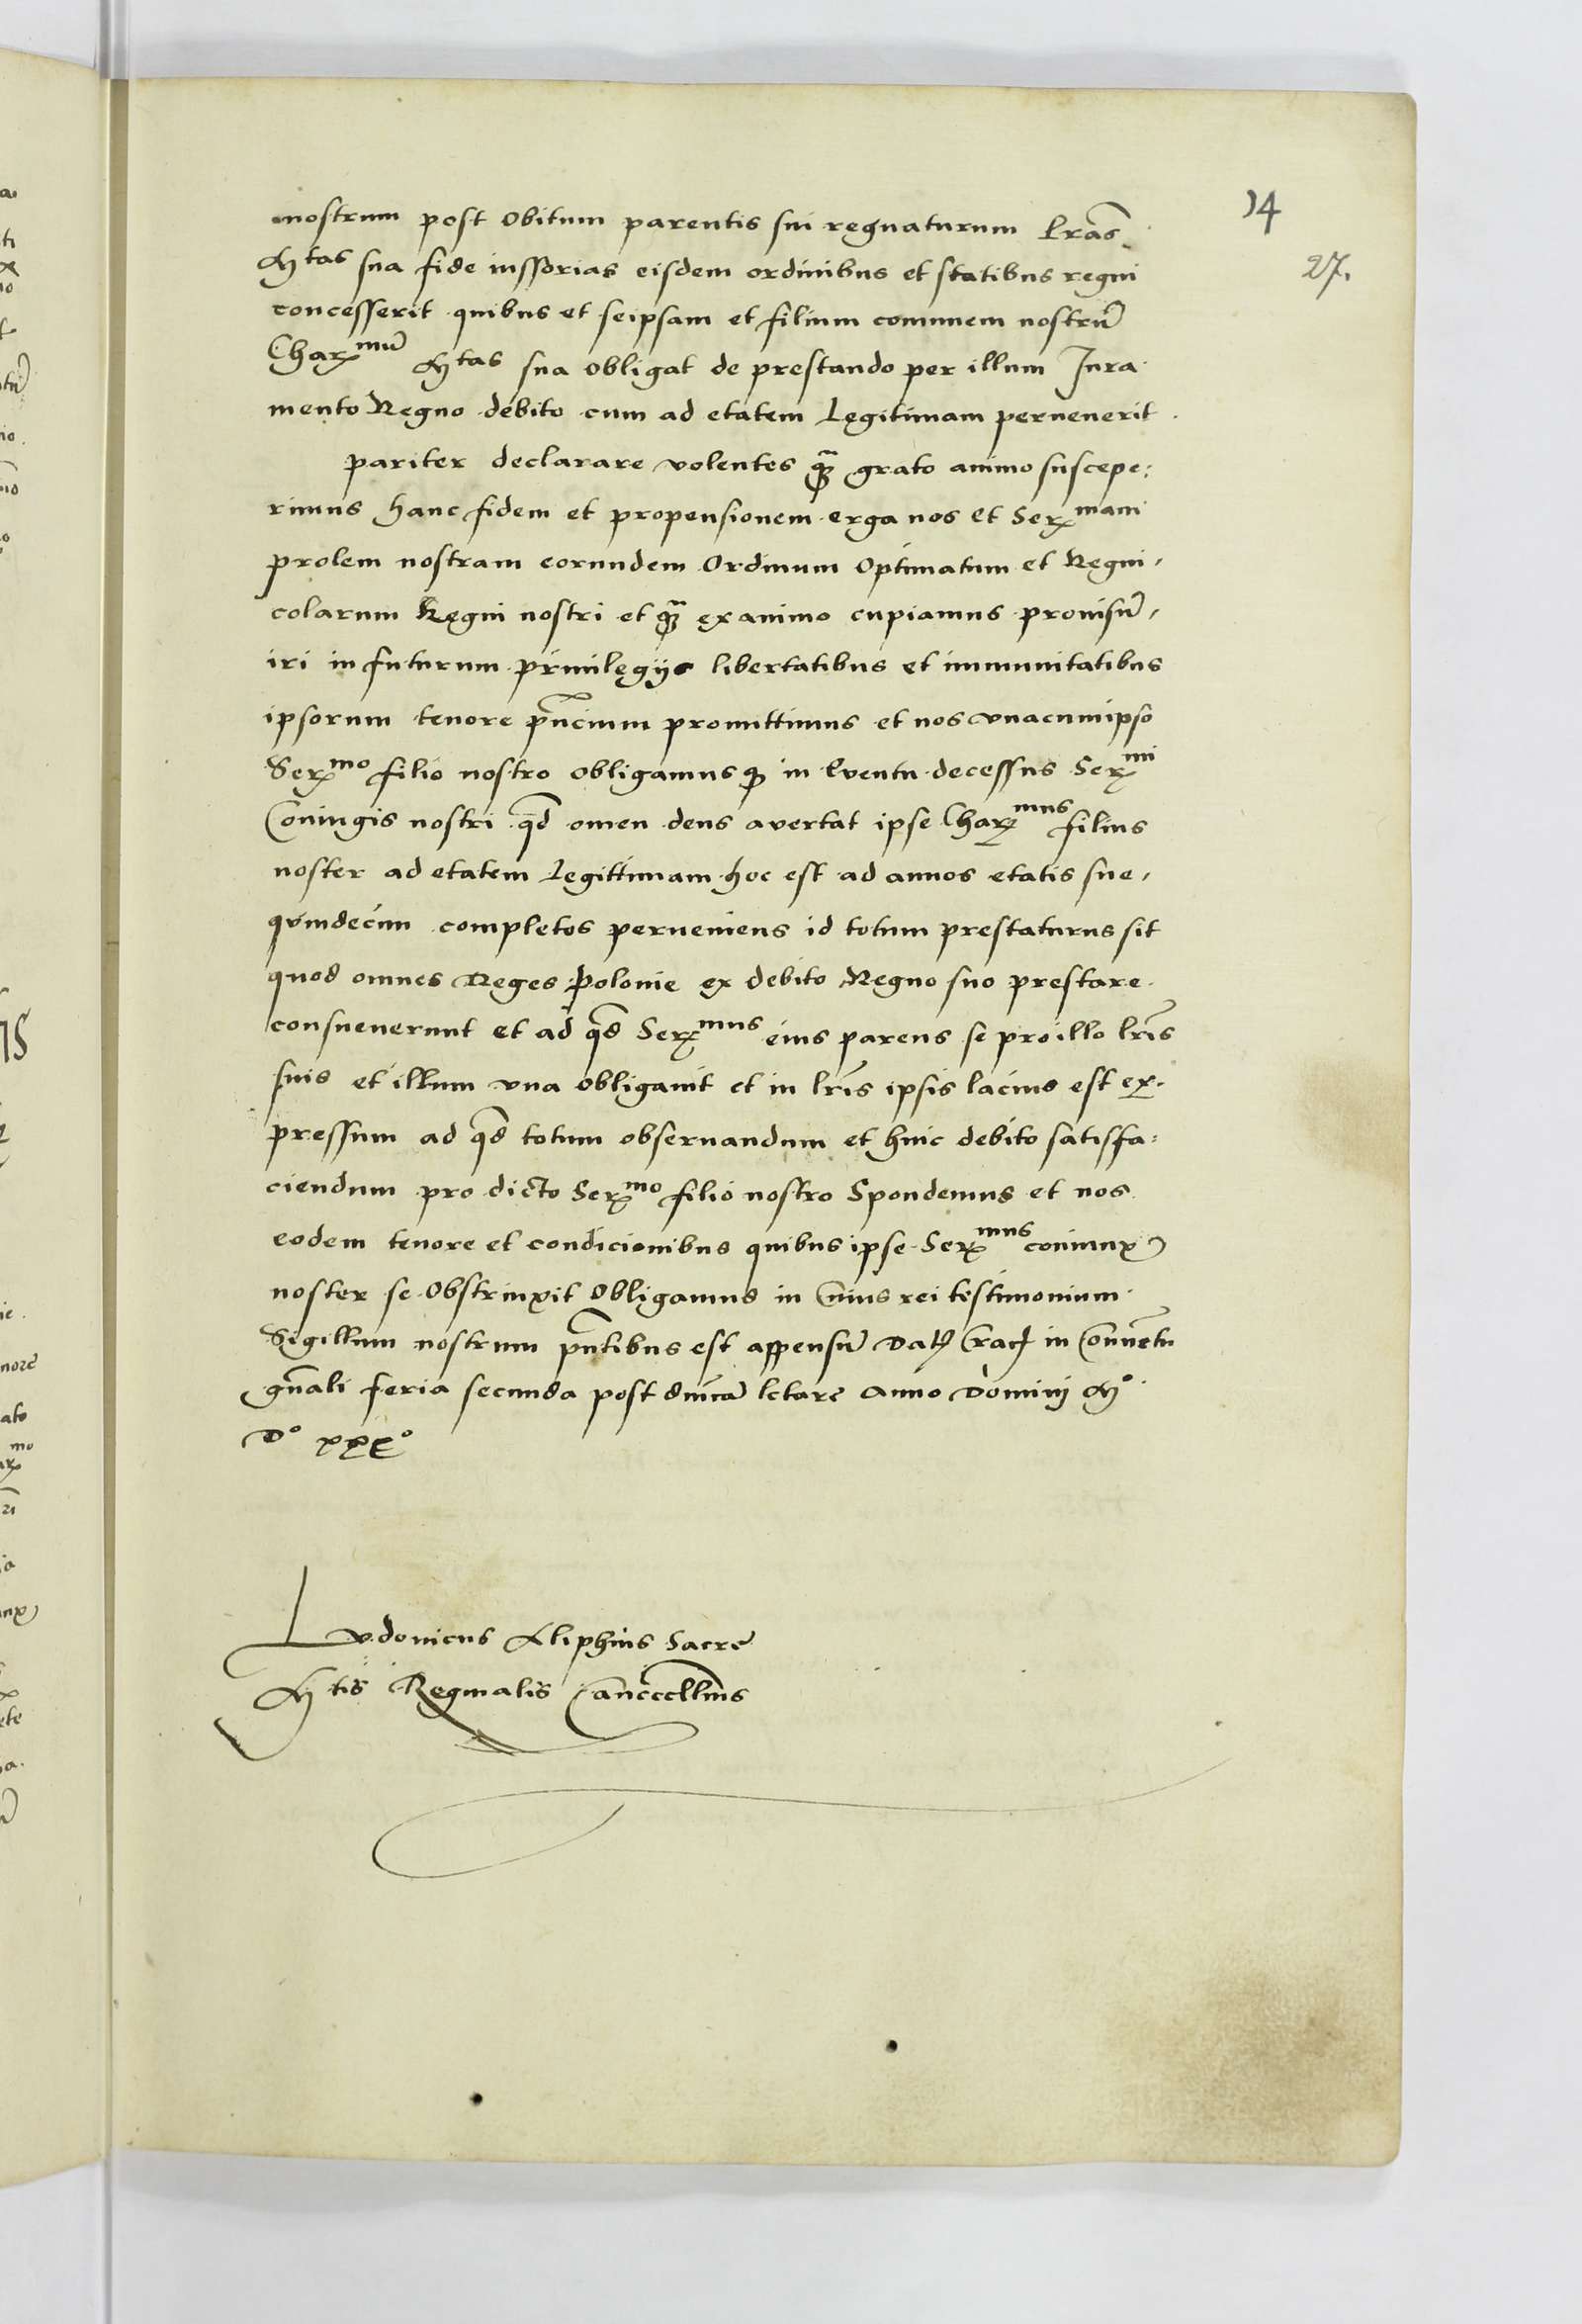 14
27.
nostrum post obitum parentis sui regnaturum lras
Mtas sua fide iussorias eisdem ordinibus et statibus regni
concesserit quibus et seipsam et filium comunem nostrū
Charmū Mtas sua obligat de prestando per illum Jura
mento Regno debito cum ad etatem Legitimam peruenerit
pariter declarare volentes q̄ȝ grato animo suscepe:
rimus hanc fidem et propensionem erga nos et Sermam
prolem nostram eorundem Ordinum Optimatum et Regni,
colarum Regni nostri et q̄ȝ ex animo cupiamus prouisū,
iri in futurum priuilegijs libertatibus et immunitatibus
ipsorum tenore pn̄cium promittimus et nos vnacum ipso
Sermo filio nostro obligamus qȝ in Euentu decessus Sermi
Coniugis nostri qd omen deus avertat ipse Charmus filius
noster ad etatem Legittimam hoc est ad annos etatis sue,
quindecim completos perueniens id totum prestaturus sit
quod omnes Reges Polonie ex debito Regno suo prestare
consueuerunt et ad qd Sermus eius parens se pro illo lris
suis et illum vna obligauit et in lris ipsis lacius est ex
pressum ad qd totum obseruandum et huic debito satisfa:
ciendum pro dicto Sermo filio nostro Spondemus et nos
eodem tenore et condicionibus quibus ipse Sermus coniunx
noster se Obstrinxit Obligamus in Cuius rei testimonium
Sigillum nostrum pn̄tibus est appensū Datȝ Crac in Conuētu
gn̄ali feria secunda post dn̄icā letare Anno Dominj Mº
Dº xxxº
Ludouicus Aliphius Sacre
Mtis Reginalis Cancellr̄ius